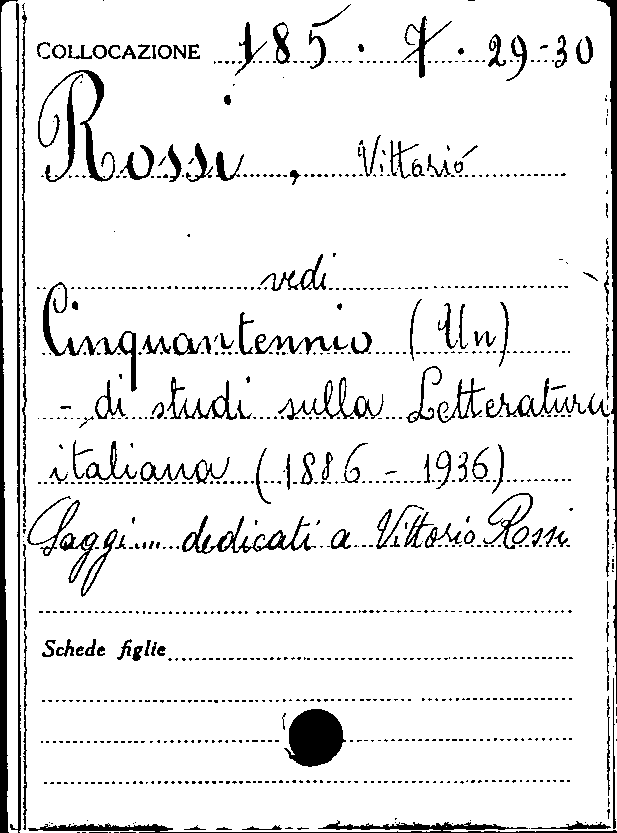 COLLOCAZIONE 185. 7. 29-30
Rossi, Vittorio
vedi
Cinquantennio (Un)
- di studi sulla Letteratura
italiana (1886 - 1936)
Saggi... dedicati a Vittorio Rossi
Schede figlie